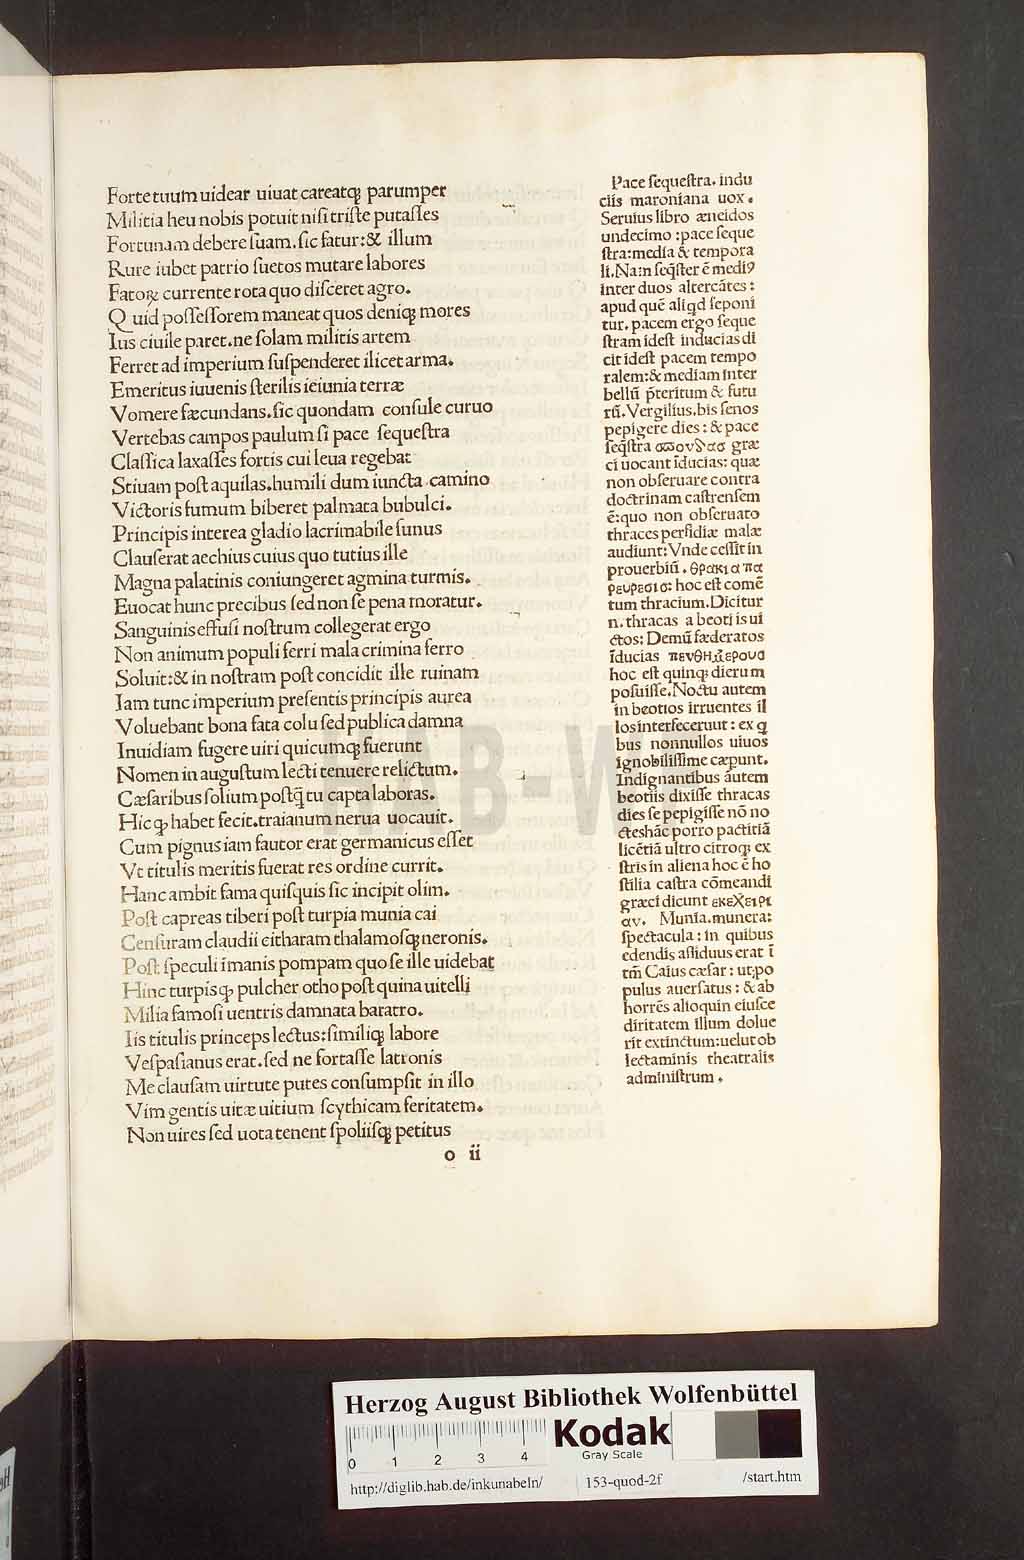 Forte tuum uidear uiuat careatqꝫ parumper
Militia heu nobis potuit nisi triste putasses
Fortunam debere suam. sic fatur:& illum
Rure iubet patrio suetos mutare labores
Fatoꝝ currente rota quo disceret agro.
Quid possessorem maneat quos deniqꝫ mores
Ius ciuile paret. ne solam militis artem
Ferret ad imperium suspenderet ilicet arma.
Emeritus iuuenis sterilis ieiunia terræ
Vomere fæcundans. sic quondam consule curuo
Vertebas campos paulum si pace sequestra
Classica laxasses fortis cui leua regebat
Stiuam post aquilas. humili dum iuncta camino
Victoris fumum biberet palmata bubulci.
Principis interea gladio lacrimabile funus
Clauserat aechius cuius quo tutius ille
Magna palatinis coniungeret agmina turmis.
Euocat hunc precibus sed non se pena moratur.
Sanguinis effusi nostrum collegerat ergo
Non animum populi ferri mala crimina ferro
Soluit:& in nostram post concidit ille ruinam
Iam tunc imperium presentis principis aurea
Voluebant bona fata colu sed publica damna
Inuidiam fugere uiri quicumqꝫ fuerunt
Nomen in augustum lecti tenuere relictum.
Cæsaribus solium postq̄ tu capta laboras.
Hic qꝫ habet fecit. traianum nerua uocauit.
Cum pignus iam fautor erat germanicus esset
Vt titulis meritis fuerat res ordine currit.
Hanc ambit fama quisquis sic incipit olim.
Post capreas tiberi post turpia munia cai
Censuram claudii citharam thalamosqꝫ neronis.
Post speculi īmanis pompam quo se ille uidebat
Hinc turpisqꝫ pulcher otho post quina uitelli
Milia famosi uentris damnata baratro.
Iis titulis princeps lectus: similiqꝫ labore
Vespasianus erat. sed ne fortasse latronis
Me clausam uirtute putes consumpsit in illo
Vim gentis uitæ uitium scythicam feritatem.
Non uires sed uota tenent spoliisqꝫ petitus
o ii
Pace sequestra. indu
ciis maroniana uox.
Seruius libro æneidos
undecimo: pace seque
stra: media & tempora
li. Nam seq̄ster ē mediꝰ
inter duos altercātes:
apud quē aliqd seponi
tur. pacem ergo seque
stram idest inducias di
cit idest pacem tempo
ralem:& mediam inter
bellū p̄teritum & futu
rū. Vergilius. bis senos
pepigere dies: & pace
seq̄stra σπουδασ græ
ci uocant īducias: quæ
non obseruare contra
doctrinam castrensem
ē: quo non obseruato
thraces perfidiæ malæ
audiunt: Vnde cessit in
prouerbiū. θρακια πα
ρευρεσισ: hoc est comē
tum thracium. Dicitur
n. thracas a beotiis ui
ctos: Demū fæderatos
īducias πενθημερουσ
hoc est quinqꝫ dierum
posuisse. Noctu autem
in beotios irruentes il
los interfecerunt: ex q
bus nonnullos uiuos
ignobilissime cæpunt.
Indignantibus autem
beotiis dixisse thracas
dies se pepigisse nō no
ctes hāc porro pactitiā
licētiā ultro citroqꝫ ex
stris in aliena hoc ē ho
stilia castra cōmeandi
græci dicunt εκεχειρι
αν. Munia. munera:
spectacula: in quibus
edendis assiduus erat ī
tm̄ Caius cæsar: ut: po
pulus auersatus: & ab
horrēs alioquin eiusce
diritatem illum dolue
rit extinctum: uelut ob
lectaminis theatralis
administrum.
HAB-WF
Herzog August Bibliothek Wolfenbüttel
0 1 2 3 4
Kodak
Gray Scale
http://diglib.hab.de/inkunabeln/ 153-quod-2f /start.htm